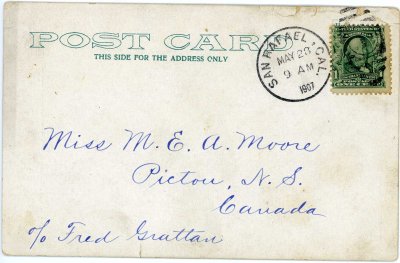 POST CARD
THIS SIDE FOR THE ADDRESS ONLY
SAN RAFAEL, CAL.
MAY 28
9 AM
1907
Miss M. E. A. Moore
Pictou, N. S.
Canada
c/o Fred Grattan